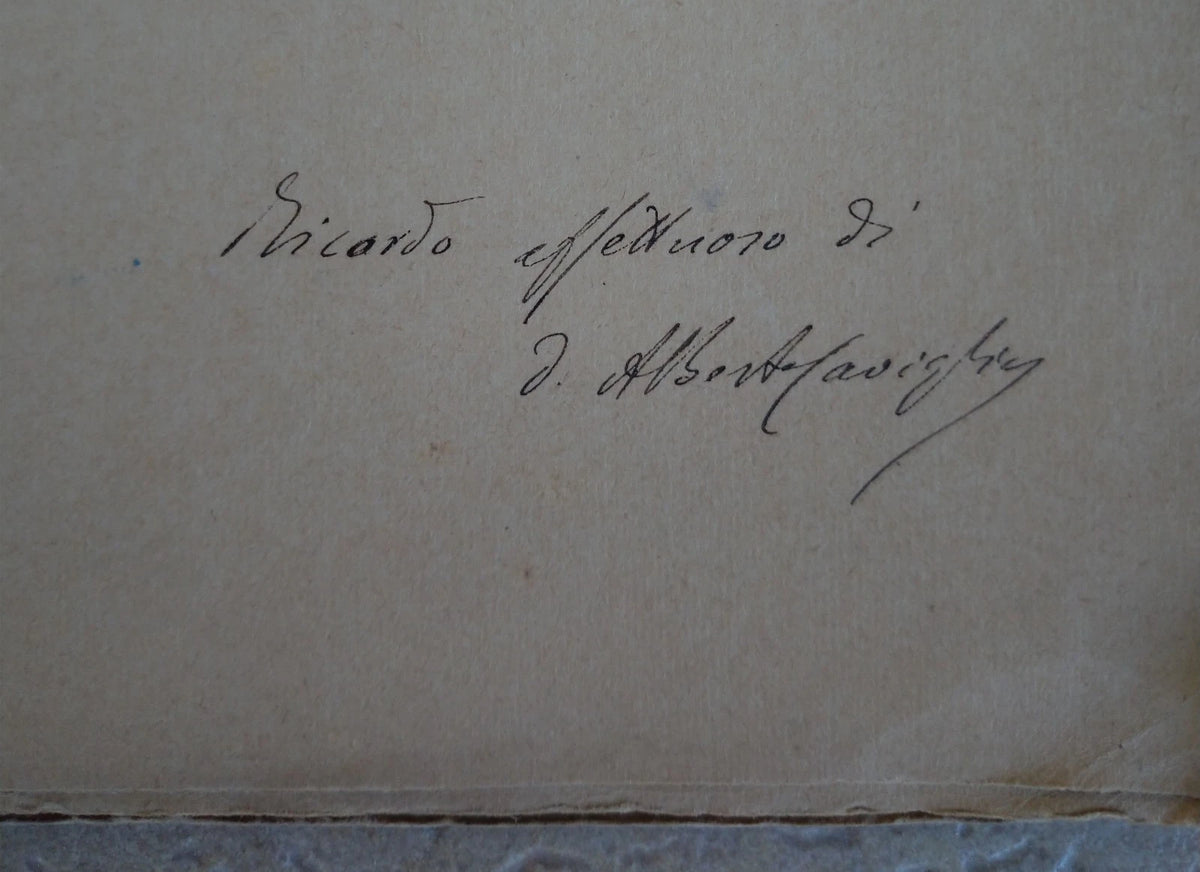 Ricordo affettuoso di
d. Alberto Caviglia